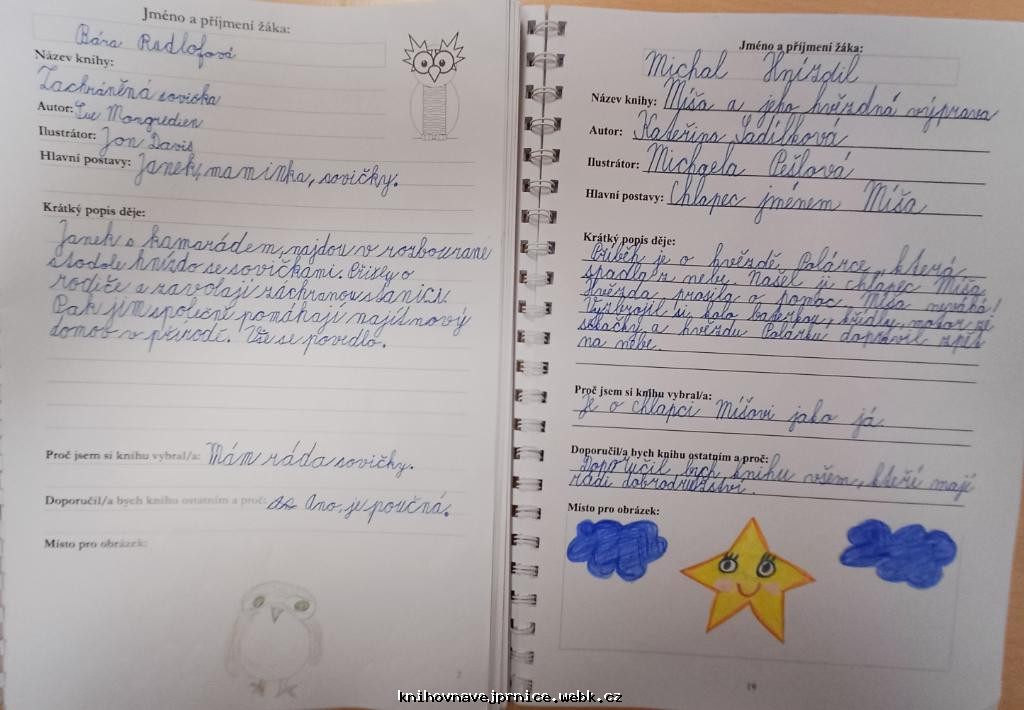 Jméno a příjmení žáka:
Bára Radlofová
Název knihy:
Zachráněná sovička
Autor: Sue Mongredien
Ilustrátor: Jon Davis
Hlavní postavy: Janek, maminka, sovičky.
Krátký popis děje:
Janek s kamarádem, najdou v rozbourané
stodole hnízdo se sovičkami. Přišly o
rodiče a zavolají záchranou stanici.
Pak jim společně pomáhají najít nový
domov v přírodě. Vše se povedlo.
Proč jsem si knihu vybral/a: Mám ráda sovičky.
Doporučil/a bych knihu ostatním a proč: Ano, je poučná.
Místo pro obrázek:
7
Jméno a příjmení žáka:
Michal Hnízdil
Název knihy: Míša a jeho hvězdná výprava
Autor: Kateřina Sadílková
Ilustrátor: Michaela Pešlová
Hlavní postavy: Chlapec jménem Míša
Krátký popis děje:
Příběh je o hvězdě Polárce, která
spadla z nebe. Našel ji chlapec Míša.
Hvězda prosila o pomoc, Míša neváhá!
Vystrojil si kolo baterkou, křídly, motor ze
sekačky a hvězdu Polárku dopravil zpět
na nebe.
Proč jsem si knihu vybral/a:
Je o chlapci Míšovi jako já.
Doporučil/a bych knihu ostatním a proč:
Doporučil bych knihu všem, kteří mají
rádi dobrodružství.
Místo pro obrázek:
19
knihovnavejprnice.webk.cz